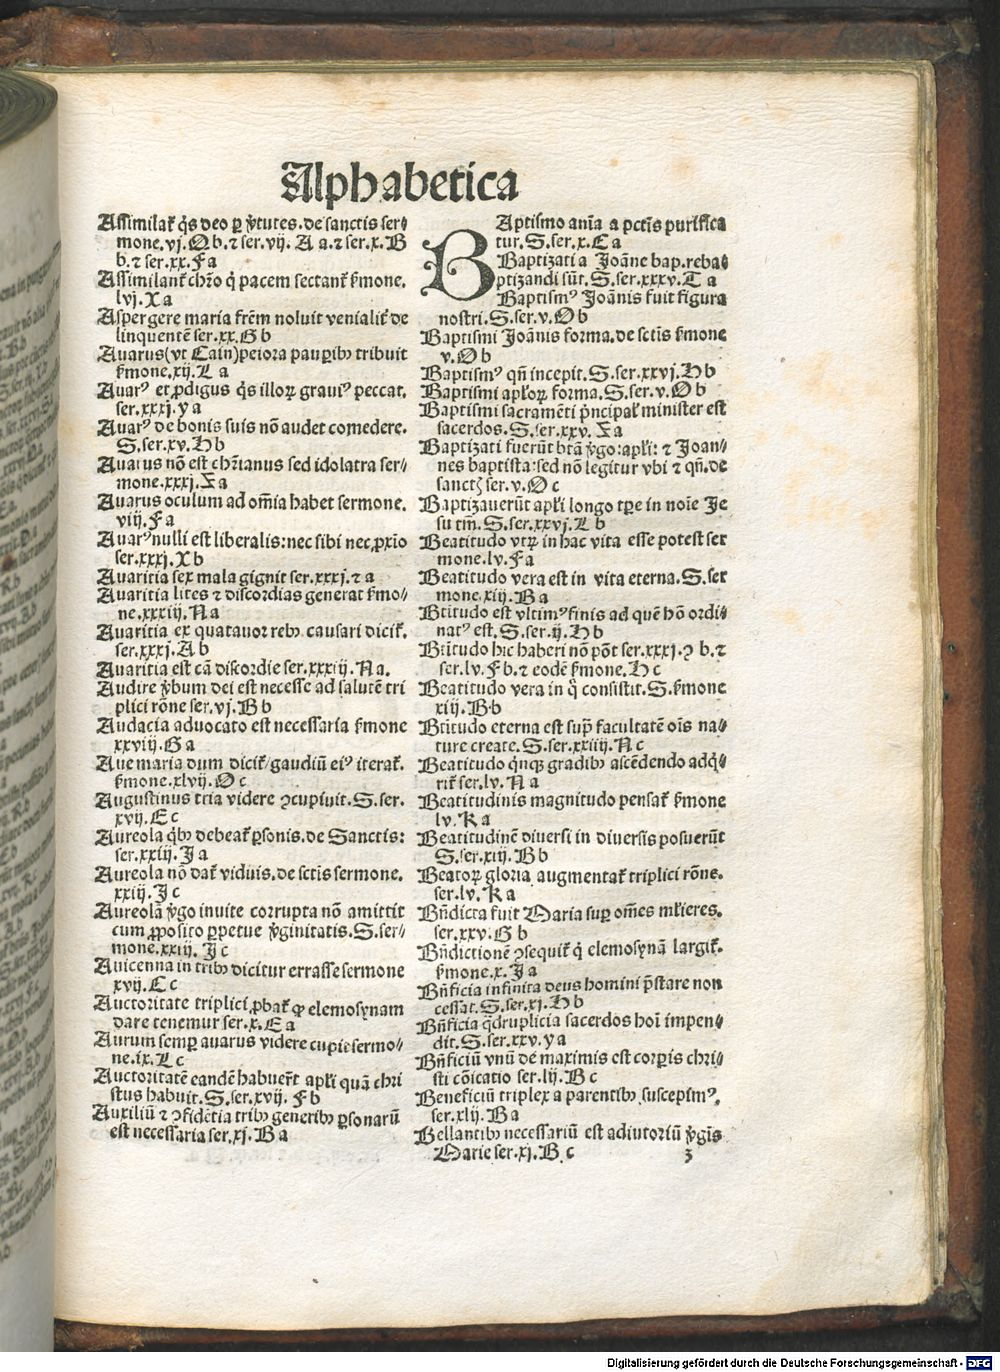 Alphabetica
Assimilat᷑ q̇s deo ꝑ v̇tutes. de sanctis ser⸗
mone. vj. O b. ⁊ ser. vij. A a. ⁊ ser. x. B
b. ⁊ ser. xx. F a
Assimilant᷑ chr̄o q̇ pacem sectant᷑ ẜmone.
lvj. X a
Aspergere maria fr̄em noluit venialit᷑ de
linquentē ser. xx. G b
Auarus (vt Cain) peiora pauꝑibꝫ tribuit
ẜmone. xij. L a
Auarꝰ et ꝓdigus q̇s illoꝝ grauiꝰ peccat.
ser. xxxj. y a
Auarꝰ de bonis suis nō audet comedere.
S. ser. xv. H b
Auarus nō est chr̄ianus sed idolatra ser⸗
mone. xxxj. Σ a
Auarus oculum ad om̄ia habet sermone.
viij. F a
Auarꝰ nulli est liberalis: nec sibi nec ꝓxīo
ser. xxxj. X b
Auaritia sex mala gignit ser. xxxj. ⁊ a
Auaritia lites ⁊ discordias generat ẜmo⸗
ne. xxxiij. N a
Auaritia ex quatuor rebꝫ causari dicit᷑.
ser. xxxj. A b
Auaritia est cā discordie ser. xxxiij. N a.
Audire v̇bum dei est necesse ad salutē tri
plici rōne ser. vj. B b
Audacia aduocato est necessaria ẜmone
xxviij. G a
Aue maria dum dicit᷑/ gaudiū eiꝰ iterat᷑.
ẜmone. xlvij. O c
Augustinus tria videre ↄcupiuit. S. ser.
xvij. E c
Aureola q̇bꝫ debeat᷑ ꝑsonis. de Sanctis:
ser. xxiij. J a
Aureola nō dat᷑ viduis. de sctīs sermone.
xxiij. J c
Aureolā v̇go inuite corrupta nō amittit
cum ꝓposito ꝑpetue v̇ginitatis. S. ser⸗
mone. xxiij. J c
Auicenna in tribꝫ dicitur errasse sermone
xvij. E c
Auctoritate triplici ꝓbat᷑ ꝙ elemosynam
dare tenemur ser. x. E a
Aurum semꝑ auarus videre cupit sermo⸗
ne. ix. L c
Auctoritatē eandē habuer̄t apl̄i quā chri
stus habuit. S. ser. xvij. F b
Auxiliū ⁊ ↄfidētia tribꝫ generibꝫ ꝑsonarū
est necessaria ser. xj. B a
BAptismo anīa a pctīs purifica
tur. S. ser. x. C a
Baptizati a Joāne bap. reba⸗
ptizandi sūt. S. ser. xxxv. T a
Baptismꝰ Joānis fuit figura
nostri. S. ser. v. O b
Baptismi Joānis forma. de sctīs ẜmone
v. O b
Baptismꝰ qn̄ incepit. S. ser. xxvj. H b
Baptismi apl̄oꝝ forma. S. ser. v. O b
Baptismi sacramēti p̄ncipal᷑ minister est
sacerdos. S. ser. xxv. Σ a
Baptizati fuerūt btā v̇go: apl̄i: ⁊ Joan⸗
nes baptista: sed nō legitur vbi ⁊ qn̄. de
sanctꝭ ser. v. O c
Baptizauerūt apl̄i longo tꝑe in noīe Je
su tm̄. S. ser. xxvj. L b
Beatitudo vtꝝ in hac vita esse potest ser
mone. lv. F a
Beatitudo vera est in vita eterna. S. ser
mone xiij. B a
Btitudo est vltimꝰ finis ad quē hō ordi⸗
natꝰ est. S. ser. ij. H b
Btitudo hic haberi nō pōt ser. xxxj. ꝯ b. ⁊
ser. lv. F b. ⁊ eodē ẜmone. H c
Beatitudo vera in q̇ consistit. S. ẜmone
xiij. B b
Btitudo eterna est supͣ facultatē oīs na⸗
ture create. S. ser. xxiiij. N c
Beatitudo q̇nqꝫ gradibꝫ ascēdendo adq̇⸗
rit᷑ ser. lv. N a
Beatitudinis magnitudo pensat᷑ ẜmone
lv. K a
Beatitudinē diuersi in diuersis posuerūt
S. ser. xiij. B b
Beatoꝝ gloria augmentat᷑ triplici rōne.
ser. lv. K a
Bn̄dicta fuit Maria suꝑ om̄es ml̄ieres.
ser. xxv. G b
Bn̄dictionē ↄsequit᷑ q̇ elemosynā largit᷑.
ẜmone. x. J a
Bn̄ficia infinita deus homini p̄stare non
cessat. S. ser. xj. H b
Bn̄ficia q̇druplicia sacerdos hoī impen⸗
dit. S. ser. xxv. y a
Bn̄ficiū vnū de maximis est corꝑis chri⸗
sti cōicatio ser. lij. B c
Beneficiū triplex a parentibꝫ suscepimꝰ.
ser. xlij. B a
Bellantibꝫ necessariū est adiutoriū v̇gīs
Marie ser. xj. B c
3
Digitalisierung gefördert durch die Deutsche Forschungsgemeinschaft - DFG